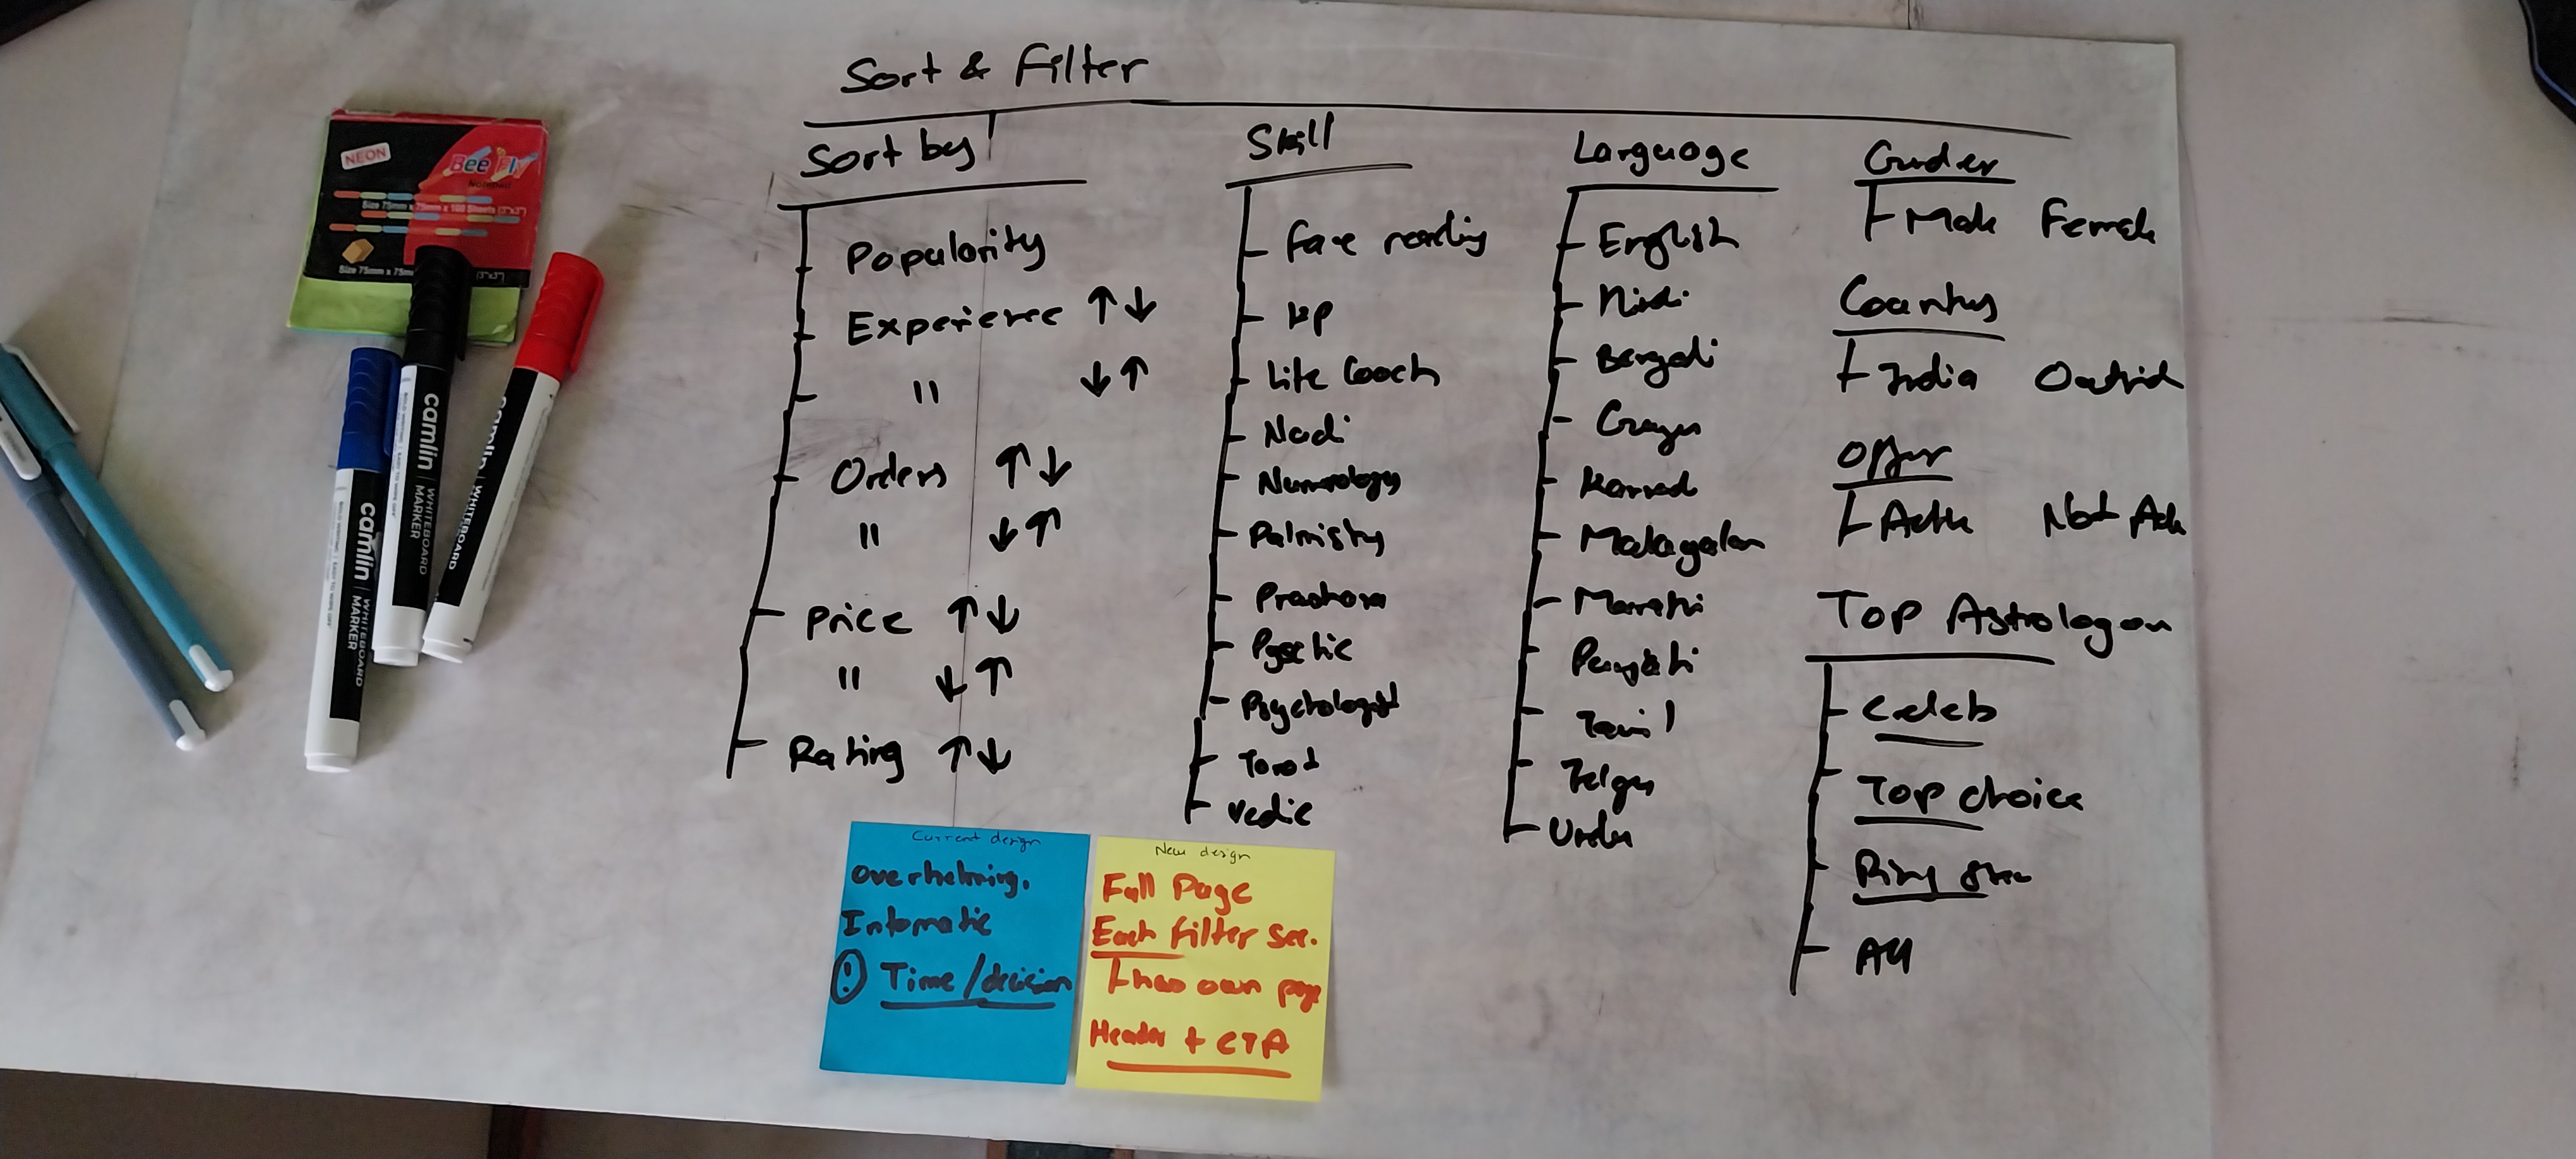 Sort & Filter
Sort by
Popularity
Experience ↑↓
" ↓↑
Orders ↑↓
" ↓↑
Price ↑↓
" ↓↑
Rating ↑↓
Skill
face reading
KP
Life Coach
Nadi
Numerology
Palmistry
Prashana
Psychologist
Tarot
Vedic
Language
English
Hindi
Bengali
Kannad
Malayalam
Marathi
Punjabi
Tamil
Urdu
Gender
Male Female
Country
India Outsid
Offer
Not
Top Astrologon
Celeb
Top choice
Rising Star
All
Current design
Overhelming.
Time/decision
New design
Full Page
Each filter sec.
has own page
Header + CTA
NEON
Bee Fly
NOTEPAD
Size 75mm x 75mm x 100 Sheets (3"x3")
Size 75mm x 75m
(3"x3")
camlin WHITEBOARD MARKER
camlin WHITEBOARD MARKER
camlin WHITEBOARD